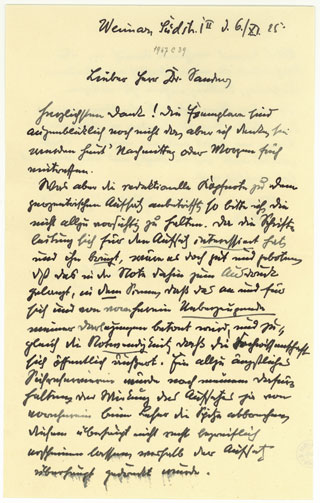 Weimar, Südstr. 1 III d. 6./XI. 25.
1967 C 39
Lieber Herr Dr. Sandroz
Herzlichsten Dank! Die Exemplare sind
augenblicklich noch nicht da, aber ich denke, sie
werden heut' Nachmittag oder Morgen früh
eintreffen.
Was aber die redaktionelle Kopfnote zu dem
Aufsatz anbetrifft so bitte ich, die
nicht allzu vorsichtig zu halten. Da die Schrift-
leitung sich für den Aufsatz interessiert hat
und ihn bringt, wäre es doch gut und geboten,
daß das in der Note dahin zum Ausdruck
gelangt, in dem Sinne, daß das an und für
sich und von vornherein Ueberzeugende
meiner Darlegungen betont wird, und zu-
gleich die Notwendigkeit, daß die Fachwissenschaft
sich öffentlich äußert. Ein allzu ängstliches
würde nach meinem Dafür-
halten der Wirkung des Aufsatzes ja von
vornherein beim Leser die Spitze abbrechen,
überhaupt nicht recht begreiflich
erscheinen lassen, weshalb der Aufsatz
überhaupt gedruckt wurde.